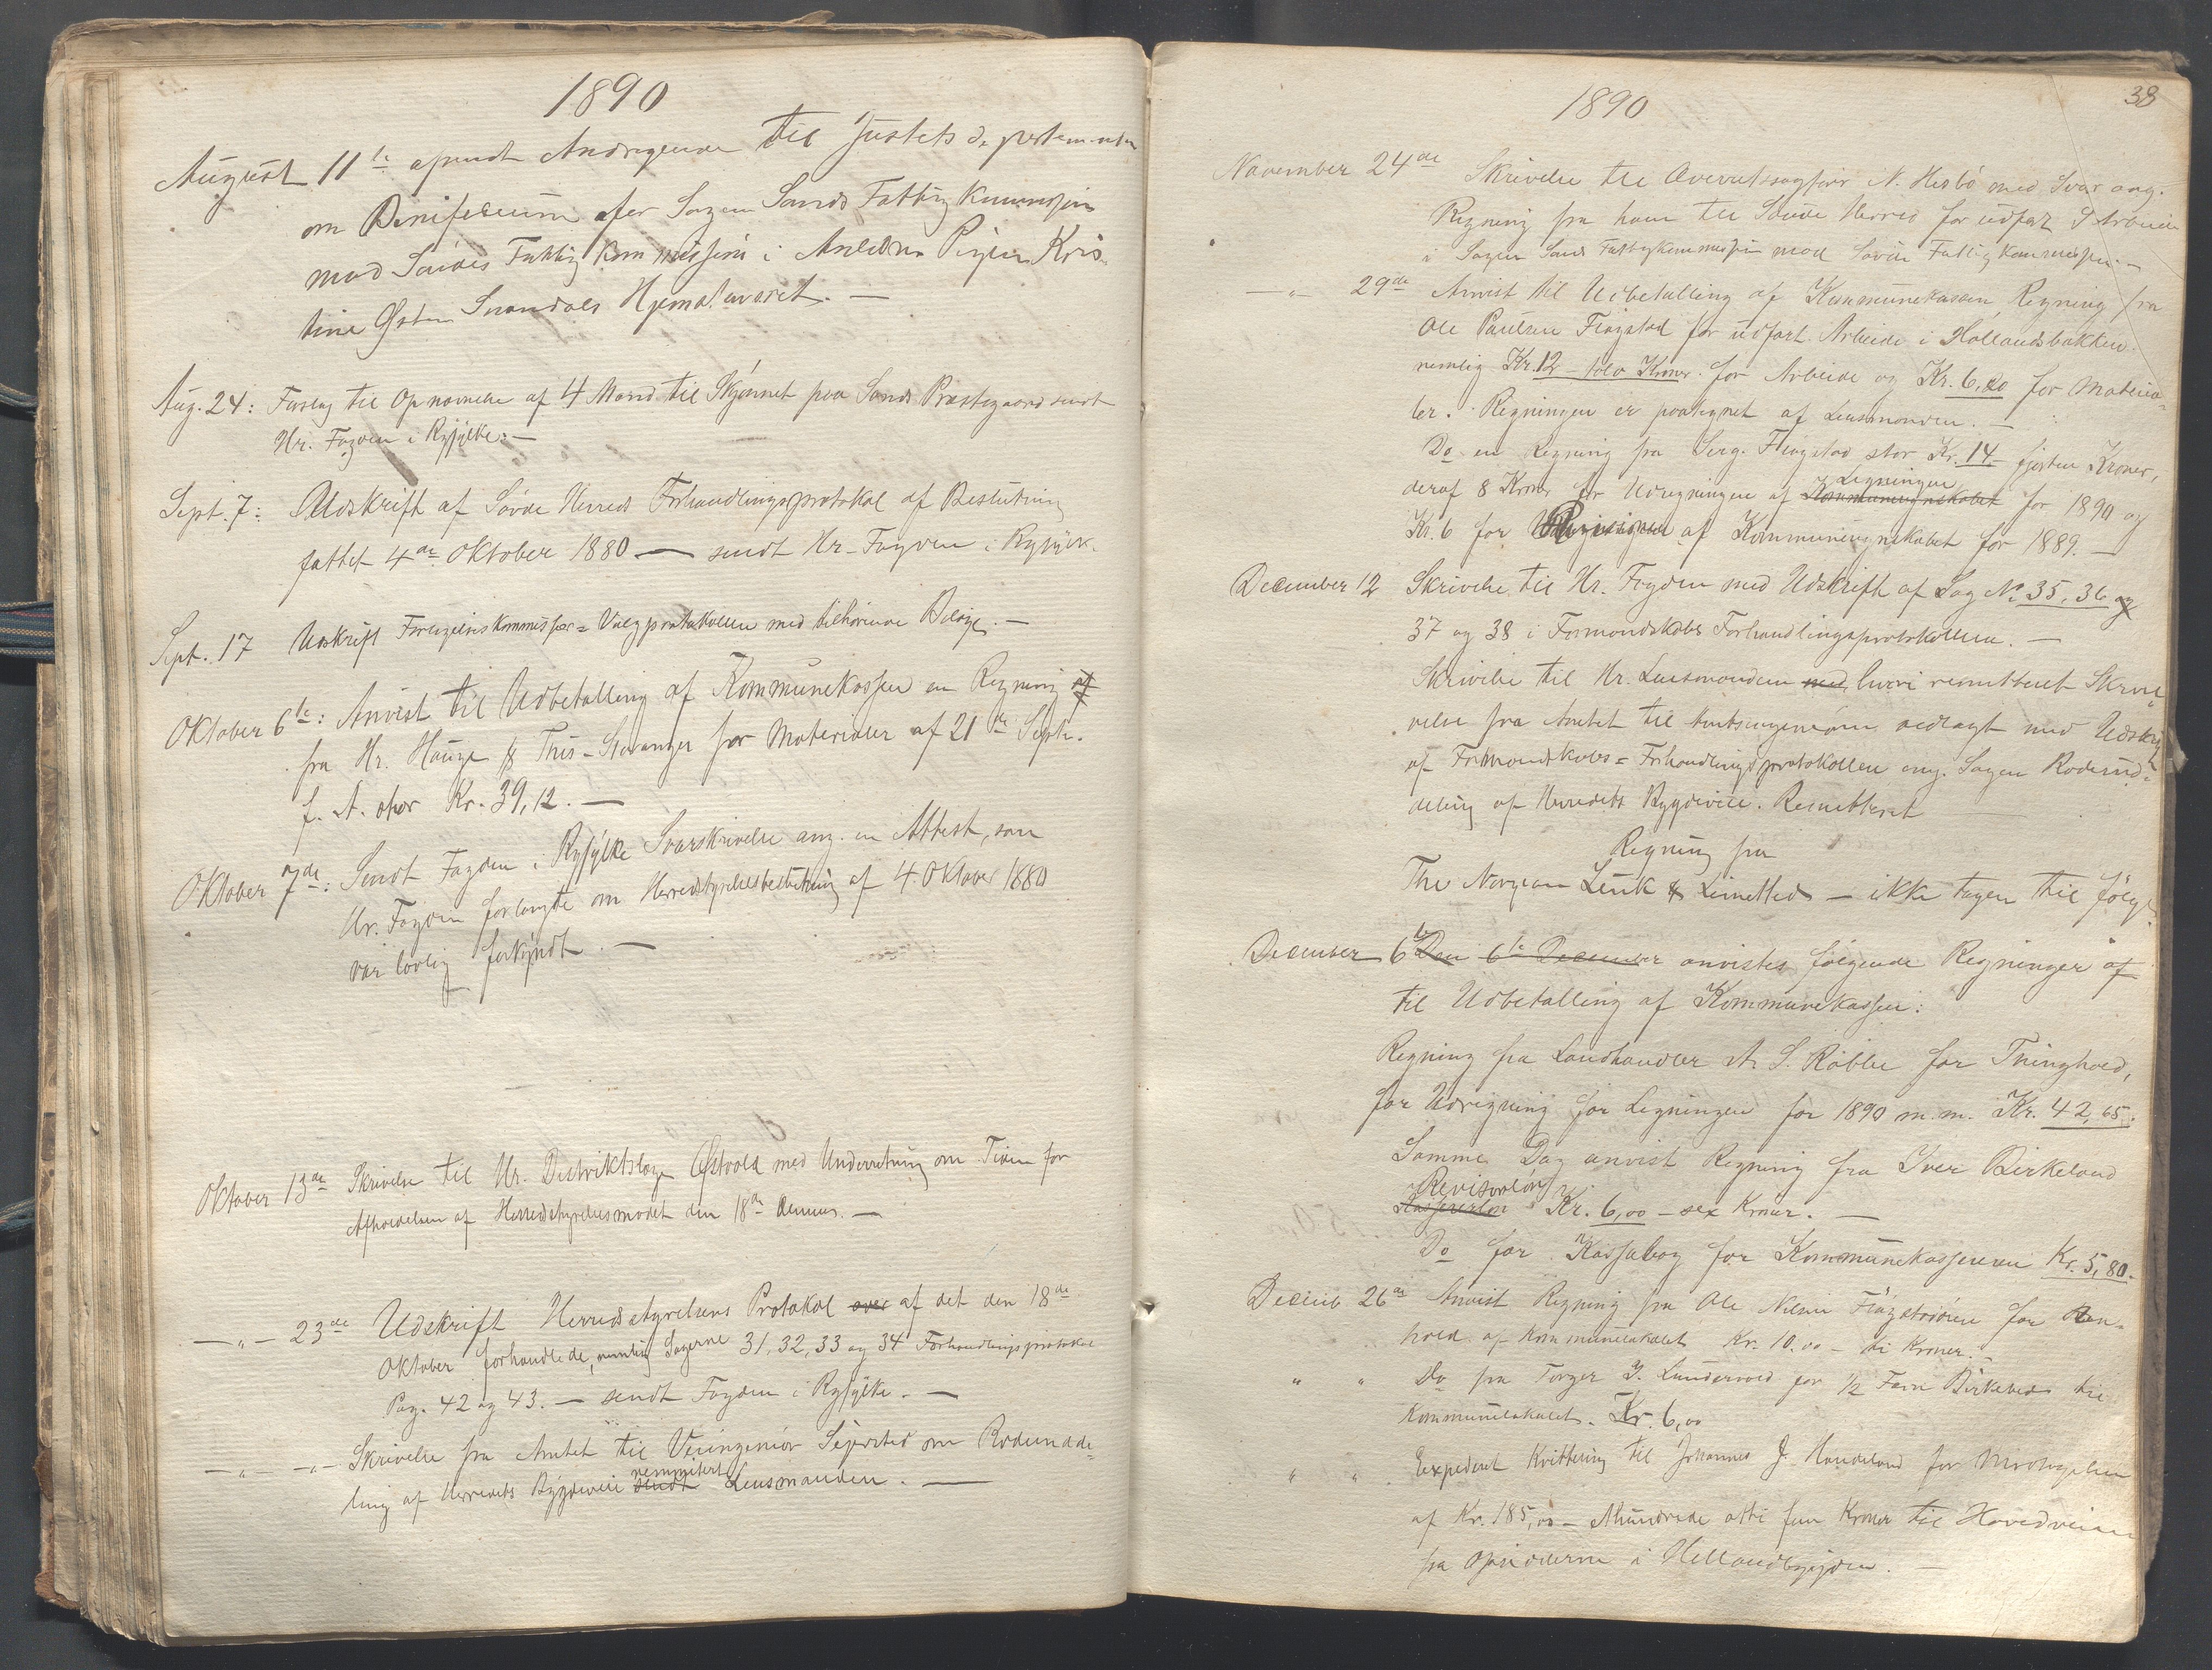 1890
August 11te Andragende til Justetsdepartementet
om Benifesium ofer Sagen Sands Fattig Kummisjon
mod Søvdes Fattig Kommissjoni i Anledn. Pigen Kris-
tine Østen Svandals Hjemstavsret. —
Aug. 24: Forslag til Opnævnelse af 4 Mænd til Skjønnet paa Sands Præstegaard sendt
Hr. Fogden i Ryfylke. —
Sept. 7: Udskrift af Søvde Herreds Forhandlingsprotokol af Beslutning
fattet 4de Oktober 1880 — sendt Hr. Fogden i Ryfylk.
Sept. 17 Udskrift Forligelseskommissær = Valgprotokollen med tilhørende Bilage. —
Oktober 6te: Anvist til Udbetalling af Kommunekassen en Regning af
fra Hr. Hauge & This - Stavanger for Materialer af 21de Septr.
f. A. stor Kr. 39,12. —
Oktober 7de: Sendt Fogden i Ryfylke Svarskrivelse ang. en Attest, som
Hr. Fogden forlangte om Herredstyrelsesbeslutning af 4. Oktober 1880
var lovlig forkyndt. —
Oktober 13de Skrivelse til Hr. Distriktslæge Østvold med Underretning om Tiden for
Afholdelsen af Herredsstyrelsesmødet den 18de dennes. —
— „ — 23de Udskrift Herredsstyrelsens Protokol over af det den 18de
Oktober forhandlede, nemlig Sagerne 31, 32, 33 og 34 Forhandlingsprotokol
Pag. 42 og 43. — sendt Fogden i Ryfylke. —
— „ — — „ — Skrivelse fra Amtet til Veiingeniør Sejersted om Rodeindde-
ling af Herredets Bygdeveie sendt remmitert Lensmanden. —
38
1890
November 24de Skrivelse til Overretssagfører N. Hesbø med Svar ang.
Regning fra ham til Søvde Herred for udført Arbeide
i Sagen Sands Fattigkommission mod Søvde Fattigkommission. —
— „ — 29de Anvist til Udbetalling af Kommunekassen Regning fra
Ole Paulsen Fløgstad for udført Arbeide i Hollandsbakken
nemlig Kr. 12 — tolv Kroner for Arbeide og Kr. 6,00 for Materia-
ler. Regningen er paategnet af Lensmanden. —
Do en Regning fra Serg. Fløgstad stor Kr. 14 — fjorten Kroner,
deraf 8 Kroner for Udregningen af Kommuneregnskabet Ligningen for 1890 og
Kr. 6 for Revisionen af Kommuneregnskabet for 1889. —
December 12 Skrivelse til Hr. Fogden med Udskrift af Sag No 35, 36 og
37 og 38 i Formandskabs Forhandlingsprotokollen. —
Skrivelse til Hr. Lensmanden med hvori remitteret Skri-
velse fra Amtet til Amtsingeniøren vedlagt med Udskrift
af Formandskabs = Forhandlingsprotokollen ang. Sagen Rodeind-
deling af Herredets Bygdeveie. Remitteret
Regning fra
The Norgean Link & Limetted — ikke tagen til følge.
December 6te Den 6te December anvistes følgende Regninger af
til Udbetalling af Kommunekassen:
Regning fra Landhandler A. S. Røbbe for Thinghold,
for Udregning for Ligningen for 1890 m.m. Kr. 42,65.
Samme Dag anvist Regning fra Iver Birkeland
Kassererløn Revisorløn Kr. 6,00 — sex Kroner. —
Do for Kassabog for Kommunekassereren Kr. 5,80.
Decemb 26de Anvist Regning fra Ole Nilsen Fløgstadøen for Ren-
hold af Kommunelokalet Kr. 10.00 — ti Kroner. —
„ „ Do fra Torger J. Lundevold for 1/2 Favn Birkeved til
Kommunelokalet. Kr. 6,00
„ „ Expederet Kvittering til Johannes J. Handeland for Modtagelsen
af Kr. 185,00 — Ahundrede otti fem Kroner til Hovedveien
fra Opsidderne i Hellandsbygden. —